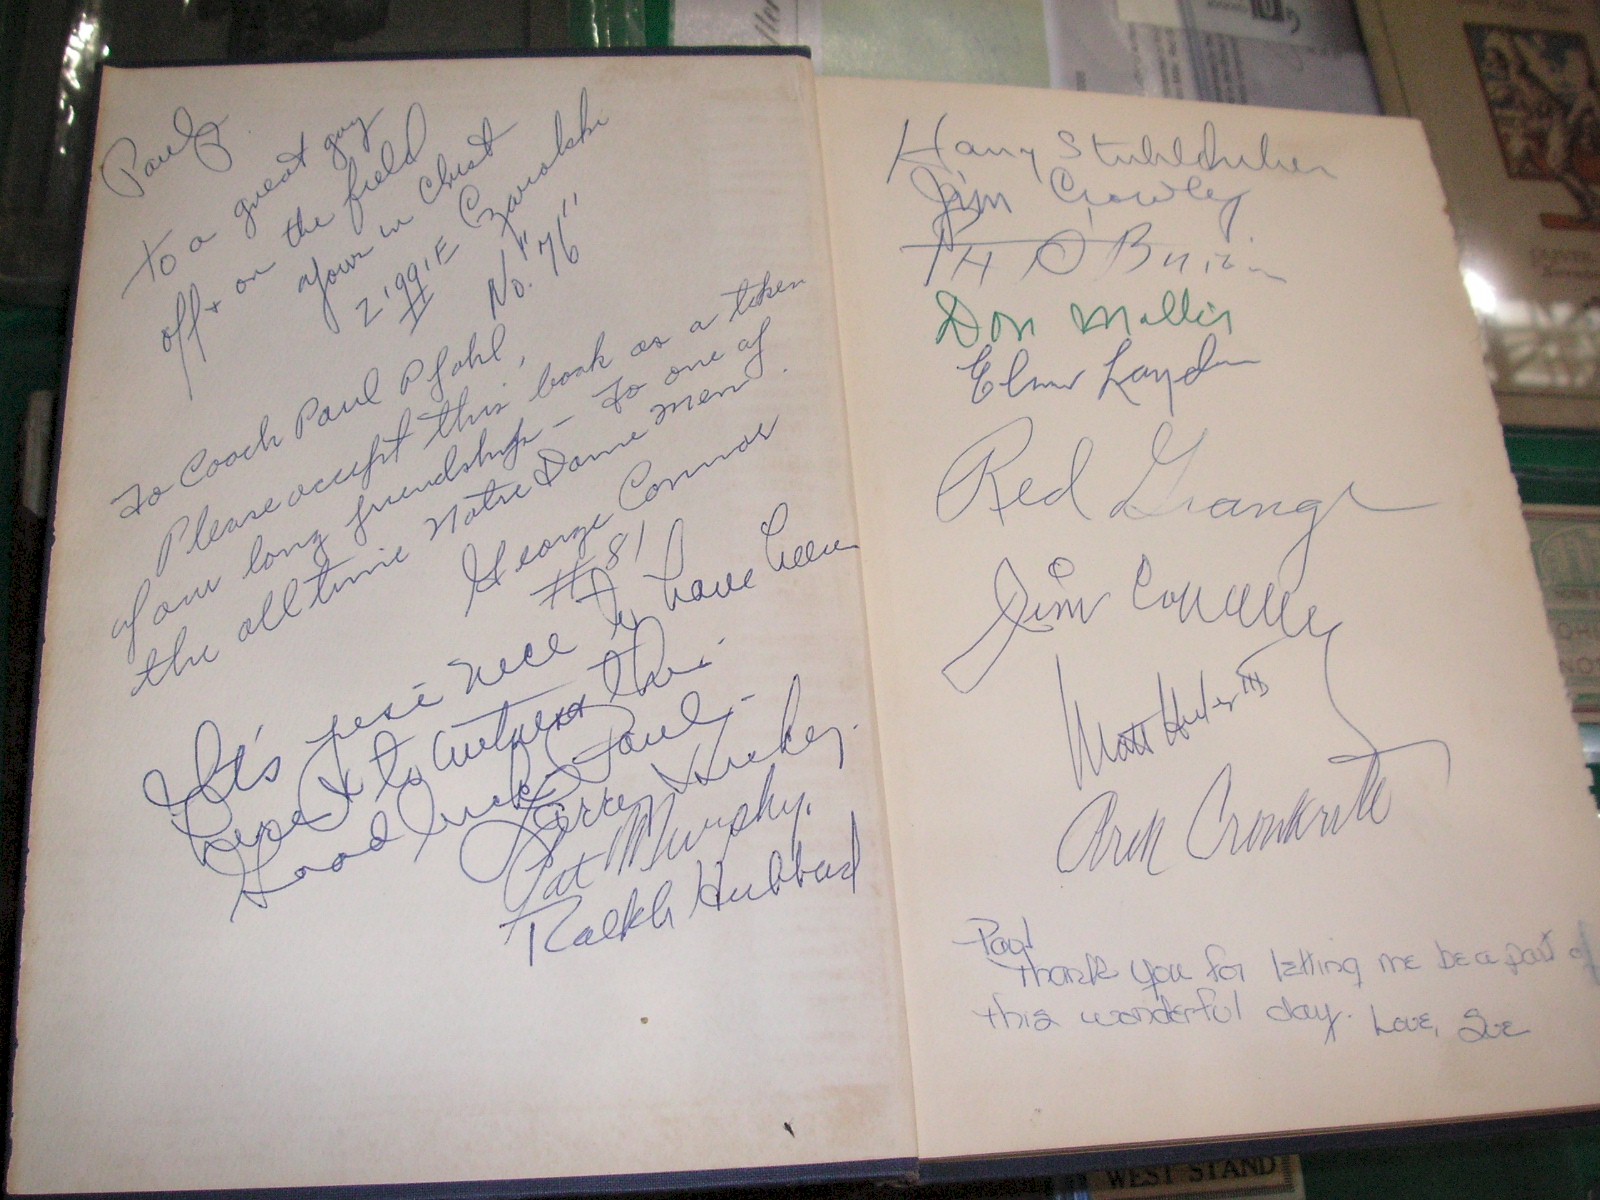 Paul,
To a great guy
off & on the field
Yours in Christ
Ziggie Czarobski
No. "76"
To Coach Paul Pfohl,
Please accept this book as a token
of our long friendship - To one of
the all time Notre Dame men.
George Connor
#81
It's just nice to have been
to witness this
Good luck Paul.
Hickey.
Pat Murphy.
Ralph Hubbard
Harry Stuhldreher
Jim Crowley
Don Miller
Elmer Layden
Red Grange
Jim Conway
Matt III
Cronkrite
Paul
Thank you for letting me be a part of
this wonderful day. Love, Sue
WEST STAND